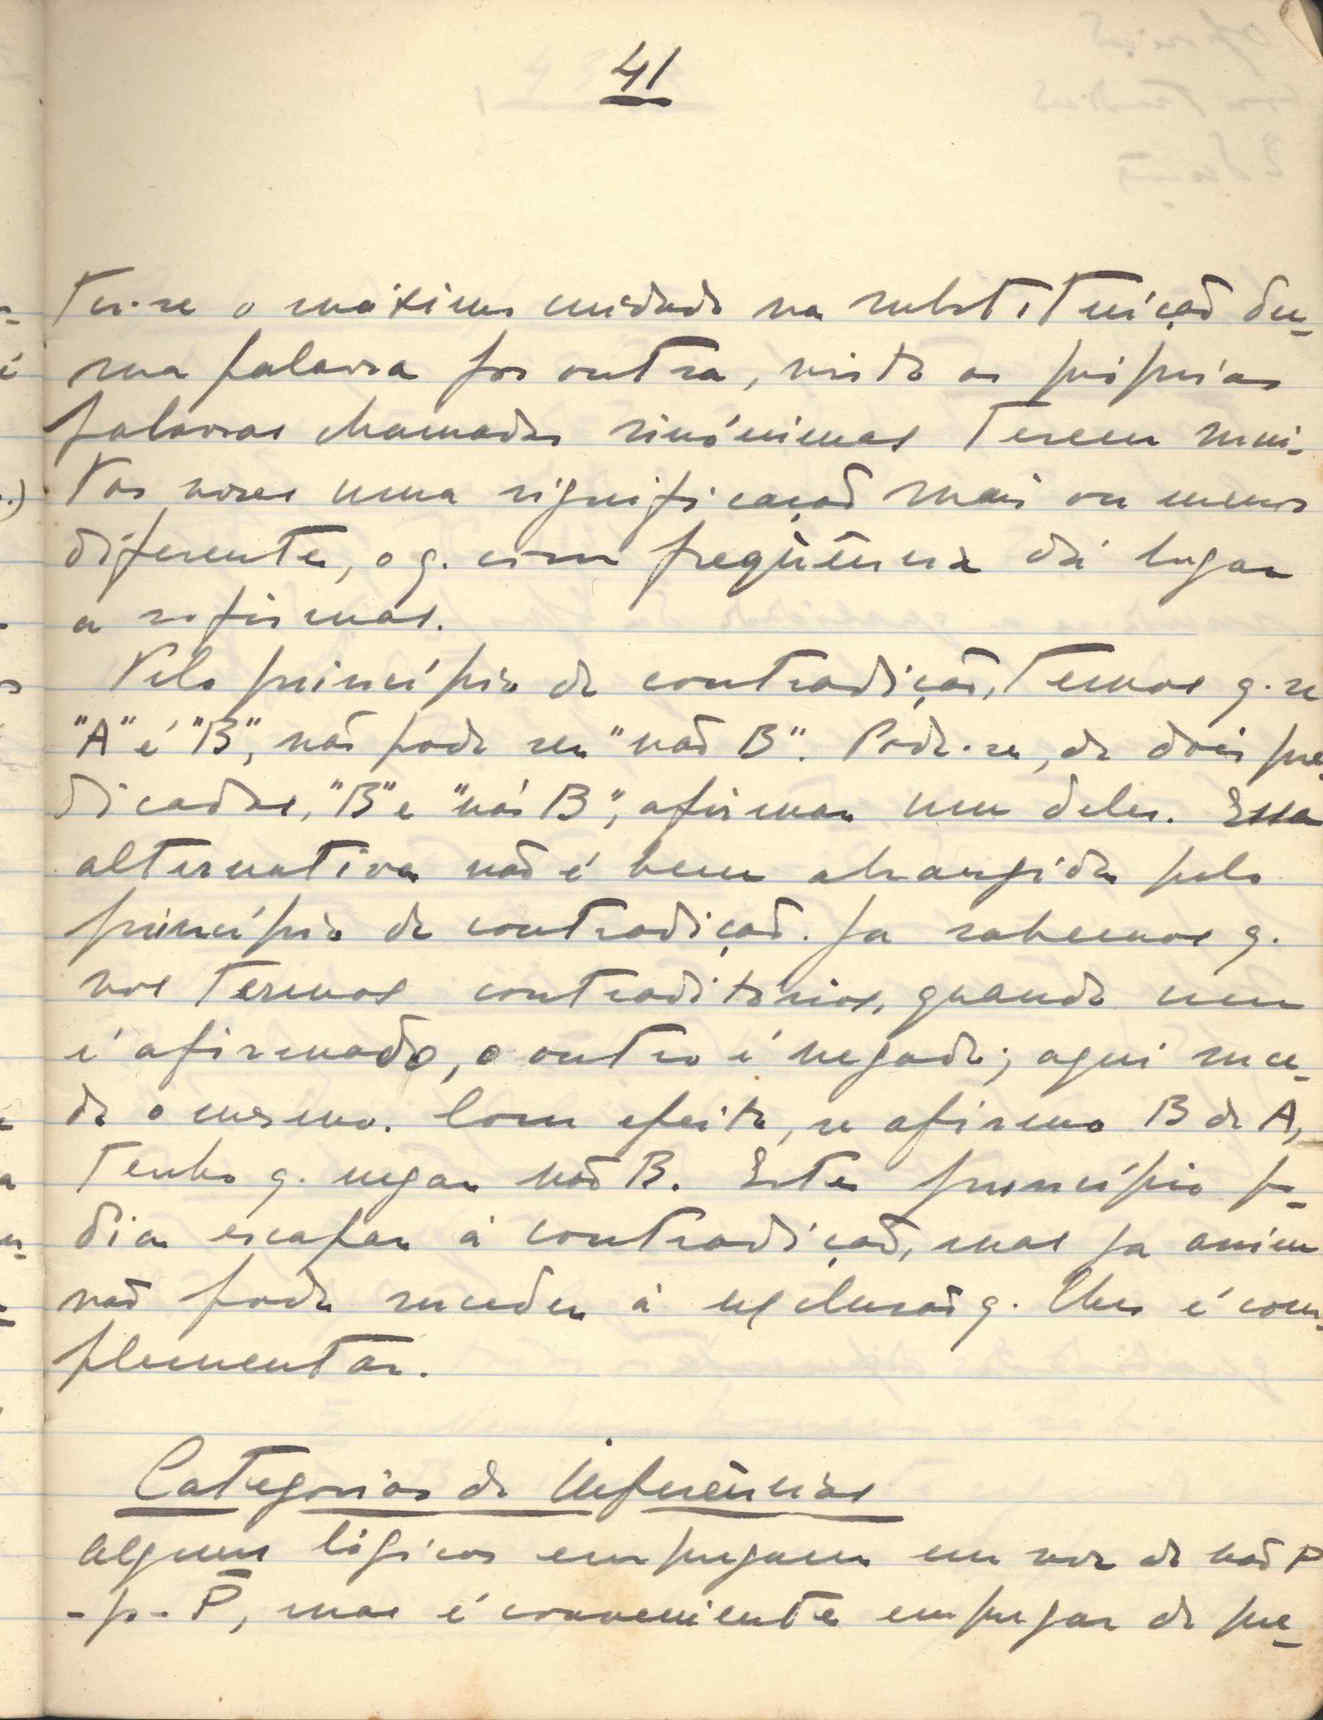 41
ter-se o máximo cuidado na substituíção du-
ma palavra por outra, visto as próprias
palavras chamadas sinónimas terem mui-
tas vezes uma significação mais ou menos
diferente, o q. com freqüência dá lugar
a sofismas.
Pelo princípio de contradição, temos q. se
"A" é "B", não pode ser "não B". Pode-se, de dois pre-
dicados, "B" e "não B", afirmar um deles. Essa
alternativa não é bem abrangida pelo
princípio de contradição. Ja sabemos q.
nos termos contraditórios, quando um
é afirmado, o outro é negado; aqui suce-
de o mesmo. Com efeito, se afirmo B de A,
tenho q. negar não B. Este princípio po-
dia escapar à contradição, mas ja assim
não pode suceder à exclusão q. lhes é com-
plementar.
Categorias de Inferências
Alguns lógicos empregam em vez de não P
-p- P̄, mas é conveniente empregar de pre-